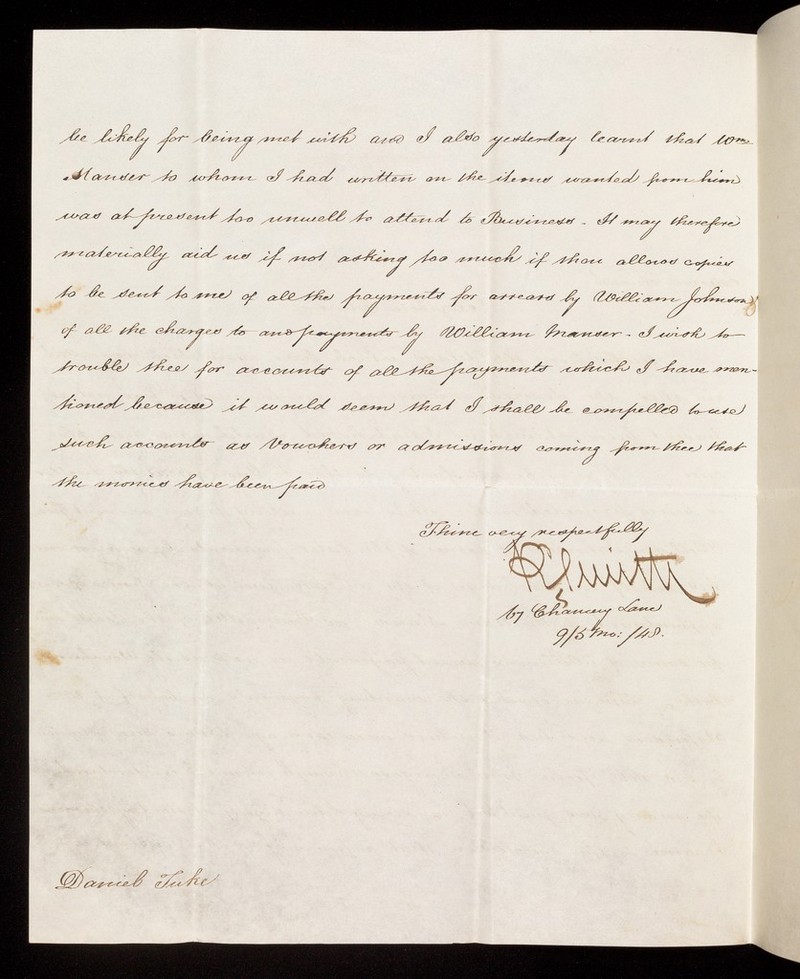 be likely for being met with and I also yesterday learnt that Wm
Manser to whom I had written on the items wanted from him
was at present too unwell to attend to Business - It may therefore
materially aid us if not asking too much if thou allows copies
to be sent to me of all the payments for arrears by William Johnson
of all the charges to and payments by William Manser - I wish to
trouble thee for accounts of all the payments which I have men-
tioned because it would seem that I shall be compelled to use
such accounts as Vouchers or admissions coming from thee that
the monies have been paid
Thine very respectfully
67 Chancery Lane
9/5 Mo: /48.
Daniel Tuke